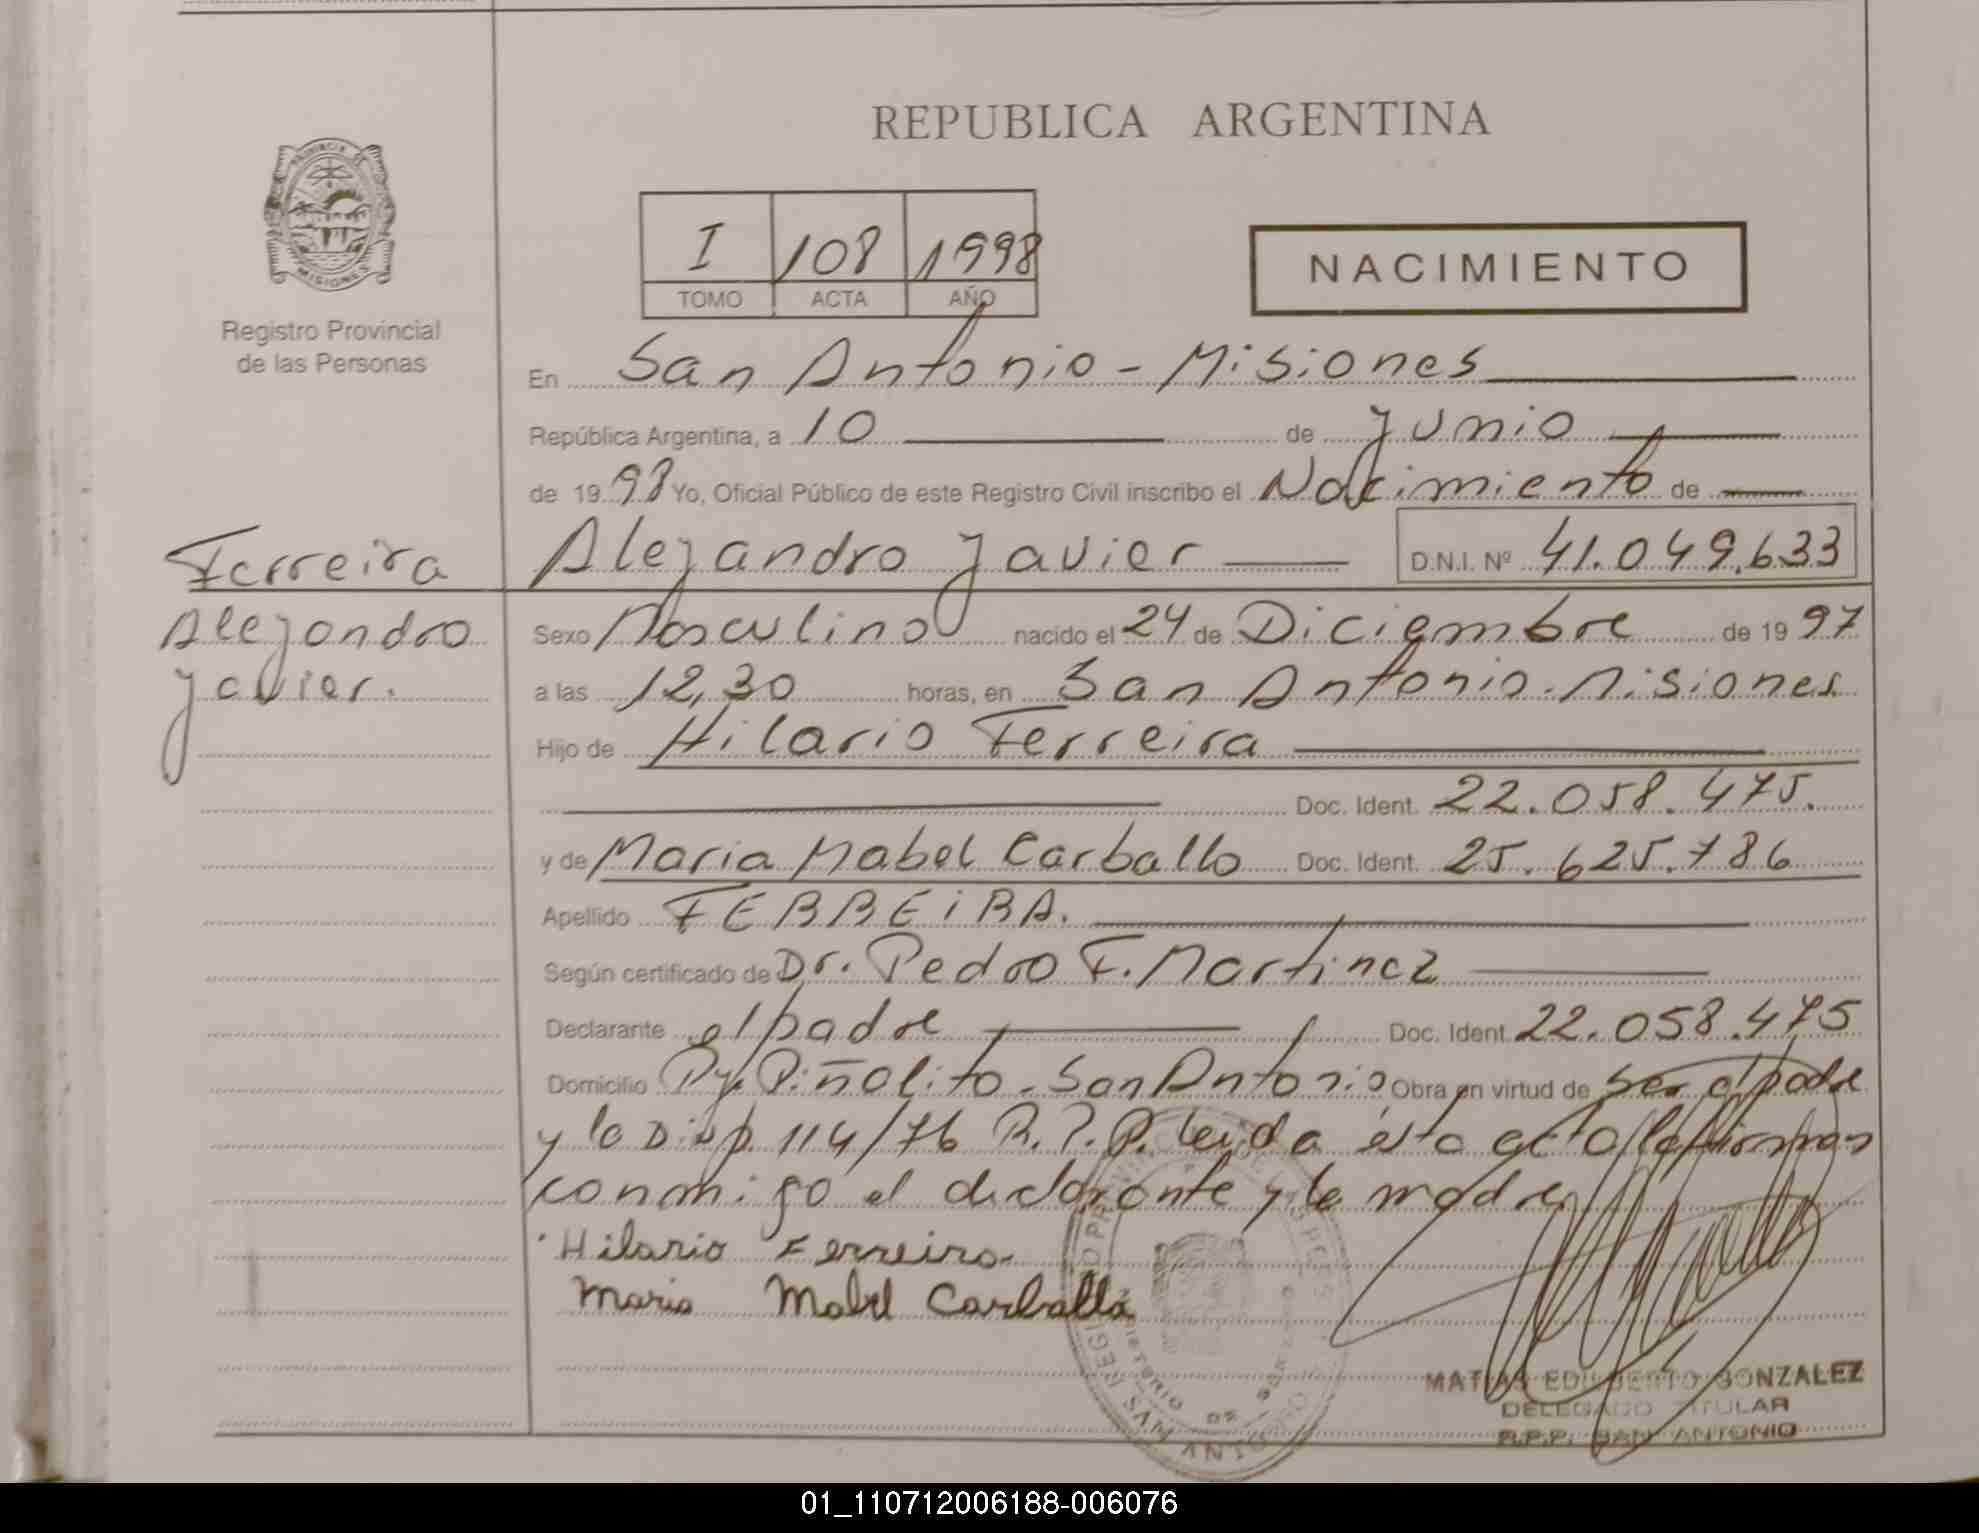 REPUBLICA ARGENTINA
PROVINCIA DE
MISIONES
Registro Provincial
de las Personas
I 108 1998
TOMO ACTA AÑO
NACIMIENTO
En San Antonio - Misiones
República Argentina, a 10 de Junio
de 1998 Yo, Oficial Público de este Registro Civil inscribo el Nacimiento de
Alejandro Javier D.N.I. Nº 41.049.633
Ferreira
Alejandro
Javier.
Sexo Masculino nacido el 24 de Diciembre de 1997
a las 12,30 horas, en San Antonio - Misiones
Hijo de Hilario Ferreira
Doc. Ident. 22.058.475.
y de Maria Mabel Carballo Doc. Ident. 25.625.786
Apellido FERREIRA.
Según certificado de Dr. Pedro F. Martinez
Declarante el padre Doc. Ident. 22.058.475
Domicilio Pje. Piñalito - San Antonio Obra en virtud de ser el padre
y la Disp. 114/76 R.P.P. Leida ésta acta la firman
conmigo el declarante y la madre
Hilario Ferreira
Maria Mabel Carballo
MATIAS EDILBERTO GONZALEZ
DELEGADO TITULAR
R.P.P. SAN ANTONIO
01_110712006188-006076